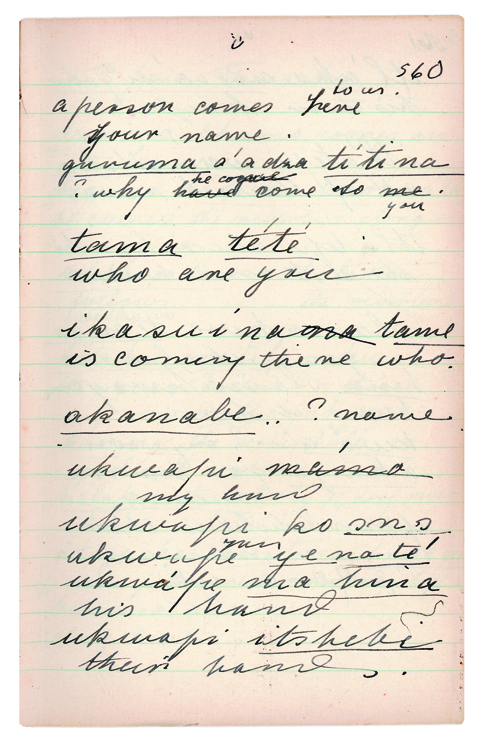 560
to us.
a person comes here
your name.
guvuma a'adza titina
he comes
? why have come to me.
you
tama tété
who are you
ikasuína na tame
is coming there who.
akanabe.. ? name
ukwapi mámo
my hand
ukwapi ko sns
your
ukwape yenaté
ukwápe ma hina
his hand
ukwapi itshebi
their hands.